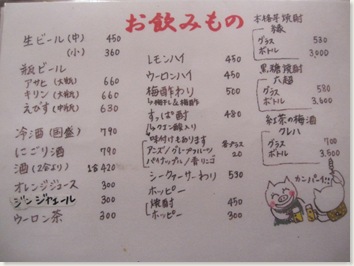 お飲みもの
生ビール(中) 450
(小) 360
瓶ビール
アサヒ(大瓶) 660
キリン(大瓶) 660
えびす(中瓶) 630
冷酒(国盛) 790
にごり酒 790
酒(2合より) 1合 420
オレンジジュース 300
ジンジャエール 300
ウーロン茶 300
レモンハイ 450
ウーロンハイ 450
梅酢わり 500
梅干し&梅酢
すっぱ酎 480
クエン酸入り
味付けもあります
アンズ/グレープフルーツ 各プラス
パイナップル/青リンゴ 20
シークヮーサーわり 530
ホッピー
焼酎 450
ホッピー 300
本格芋焼酎
縁
グラス 530
ボトル 3,000
黒糖焼酎
大麹
グラス 580
ボトル 3,600
紅茶の梅酒
クレハ
グラス 700
ボトル 3,500
カンパーイ!!